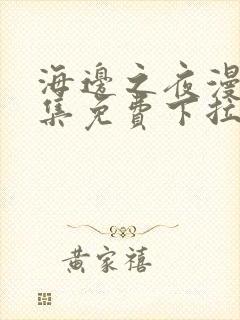 海邊之夜漫
集免費下拉
黃家禧